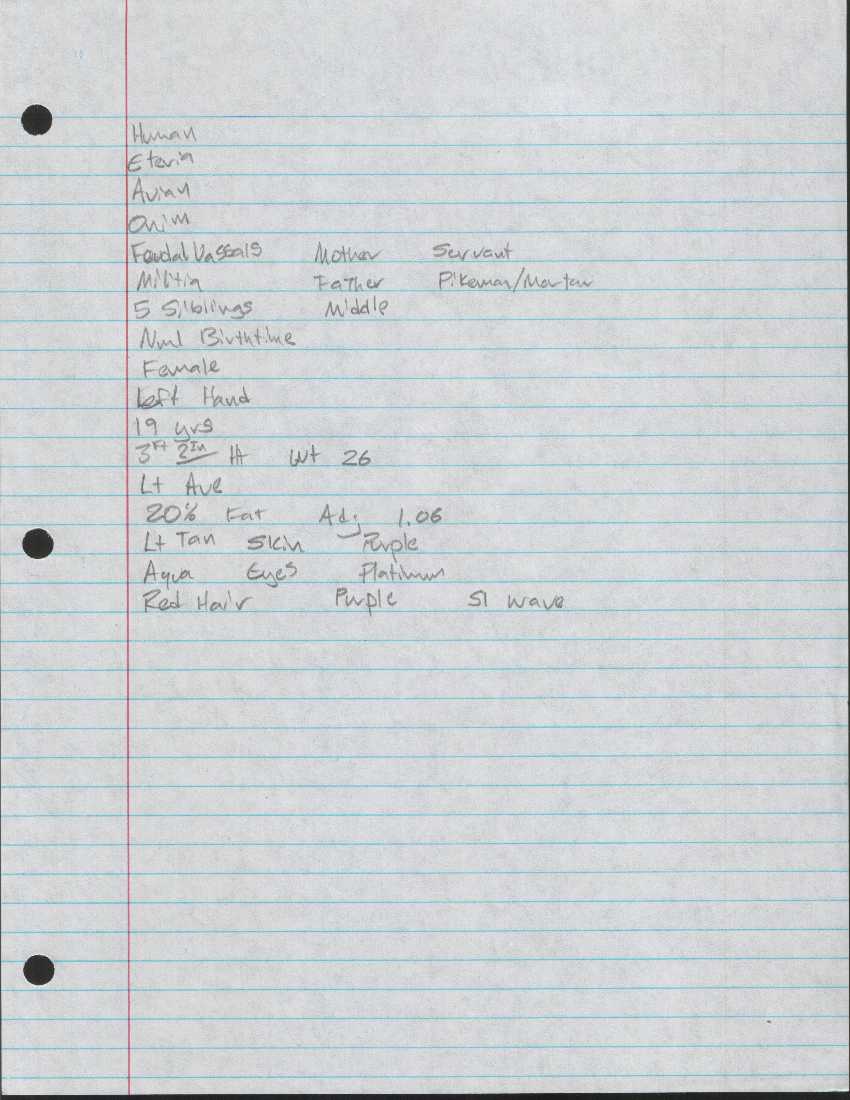 Human
Eteria
Avian
Onim
Feudal Vassals Mother Servant
Militia Father Pikeman/
5 Siblings Middle
Nml Birthtime
Female
Left Hand
19 yrs
3Ft 2In Ht Wt 26
Lt Ave
20% Fat Adj 1.06
Lt Tan Skin Purple
Aqua Eyes Platinum
Red Hair Purple Sl Wave